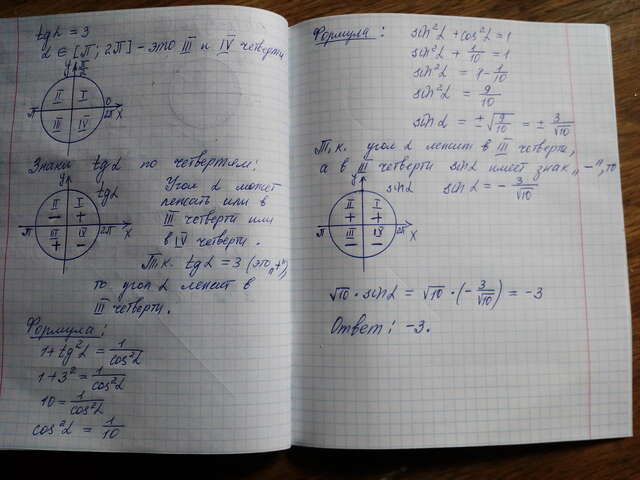 tg α = 3
α ∈ [π; 2π] - это III и IV четверти
y π/2
II I
π 0
2π x
III IV
Знаки tg α по четвертям:
y tg α
II I
- +
π 2π x
III IV
+ -
Угол α может
лежать или в
III четверти или
в IV четверти.
Т.к. tg α = 3 (это „+“),
то угол α лежит в
III четверти.
Формула:
1 + tg²α = 1/cos²α
1 + 3² = 1/cos²α
10 = 1/cos²α
cos²α = 1/10
Формула: sin²α + cos²α = 1
sin²α + 1/10 = 1
sin²α = 1 - 1/10
sin²α = 9/10
sin α = ±√(9/10) = ± 3/√10
Т.к. угол α лежит в III четверти,
а в III четверти sin α имеет знак „-“, то
y sin α sin α = - 3/√10
II I
+ +
π 2π x
III IV
- -
√10 · sin α = √10 · (- 3/√10) = -3
Ответ: -3.